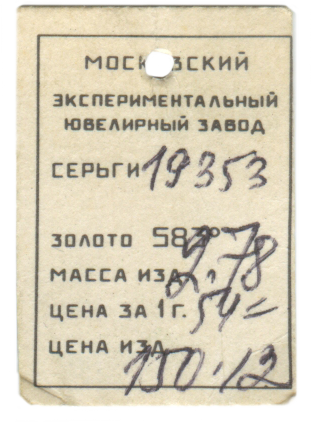 МОСКОВСКИЙ
ЭКСПЕРИМЕНТАЛЬНЫЙ
ЮВЕЛИРНЫЙ ЗАВОД
СЕРЬГИ 19353
ЗОЛОТО 583°
МАССА ИЗД. 2,78
ЦЕНА ЗА 1 Г. 54=
ЦЕНА ИЗД. 150-12